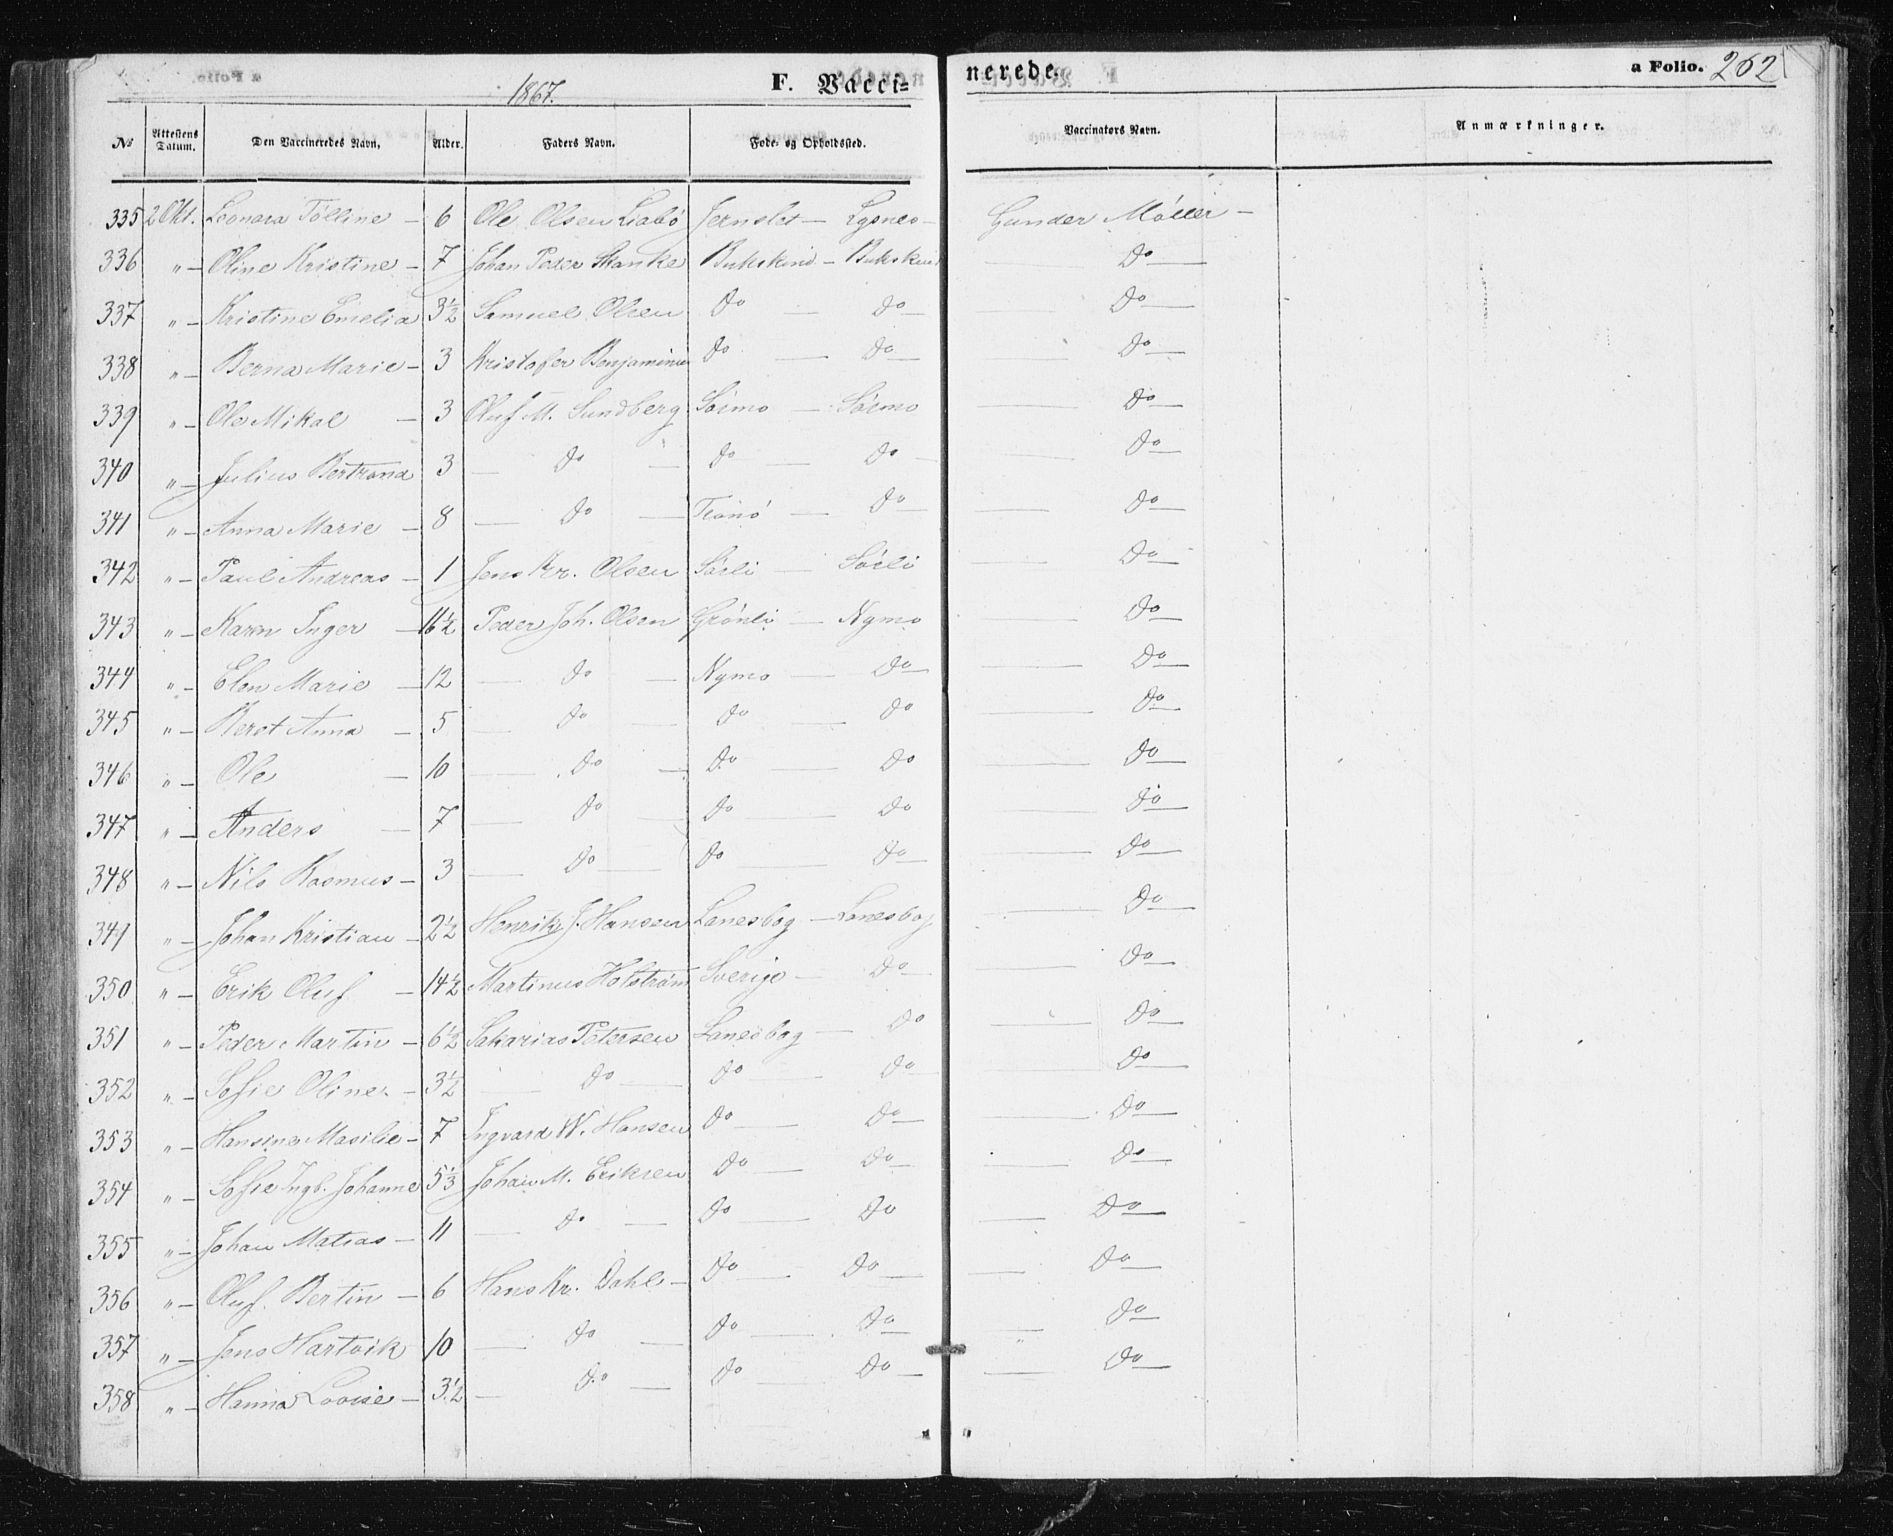 1867.
F. Vacci=
nerede.
a Folio. 262
№ Attestens Datum. Den Vaccineredes Navn. Alder. Faders Navn. Føde- og Opholdssted. Vaccinators Navn. Anmærkninger.
335 2 Okt. Leonara Tølline — 6 Ole Olsen Liabø — Lysnes — Gunder Møller —
336 " — Oline Kristine — 7 Johan Peder Skanke Bukskind — Bukskind — Do —
337 " — Kristine Emelia 3½ Samuel Olsen Do — Do — — Do —
338 " — Berna Marie — 3 Kristofer Benjaminsen Do — Do — — Do —
339 " — Ole Mikal — 3 Oluf M. Sundberg Sørmo — Sørmo — Do —
340 " — Julius Bertrand 3 — Do — Do — Do — — Do —
341 " — Anna Marie — 8 — Do — Tranø — Do — — Do —
342 " — Paul Andreas — 1 Jens Kr. Olsen Sørli — Sørli — Do —
343 " — Karen Inger — 16½ Peder Joh. Olsen Grønli — Nymo — Do —
344 " — Elen Marie — 12 — Do — Nymo — Do — — Do —
345 " — Beret Anna — 5 — Do — Do — Do — Do —
346 " — Ole — 10 — Do — Do — Do — Do —
347 " — Anders — 7 — Do — Do — Do — Do —
348 " — Nils Rasmus — 3 — Do — Do — Do — — Do —
349 " — Johan Kristian — 2½ Henrik J. Hansen Lanesbog — Lanesbog — Do —
350 " — Erik Oluf — 14½ Martinus Holstrøm Sverige — Do — — Do —
351 " — Peder Martin — 6½ Sakarias Petersen Lanesbog — Do — Do —
352 " — Sofie Oline — 3½ — Do — Do — Do — — Do —
353 " — Hansine Masilie — 7 Ingvard W. Hansen Do — Do — — Do —
354 " — Sofie Ingb. Johanne 5⅓ Johan M. Eriksen Do — Do — — Do —
355 " — Johan Matias — 11 — Do — Do — Do — Do —
356 " — Oluf Bertin — 6 Hans Kr. Dahl — Do — Do — — Do —
357 " — Jens Hartvik 10 — Do — Do — Do — — Do —
358 " — Hanna Lovise — 3½ — Do — Do — Do — — Do —